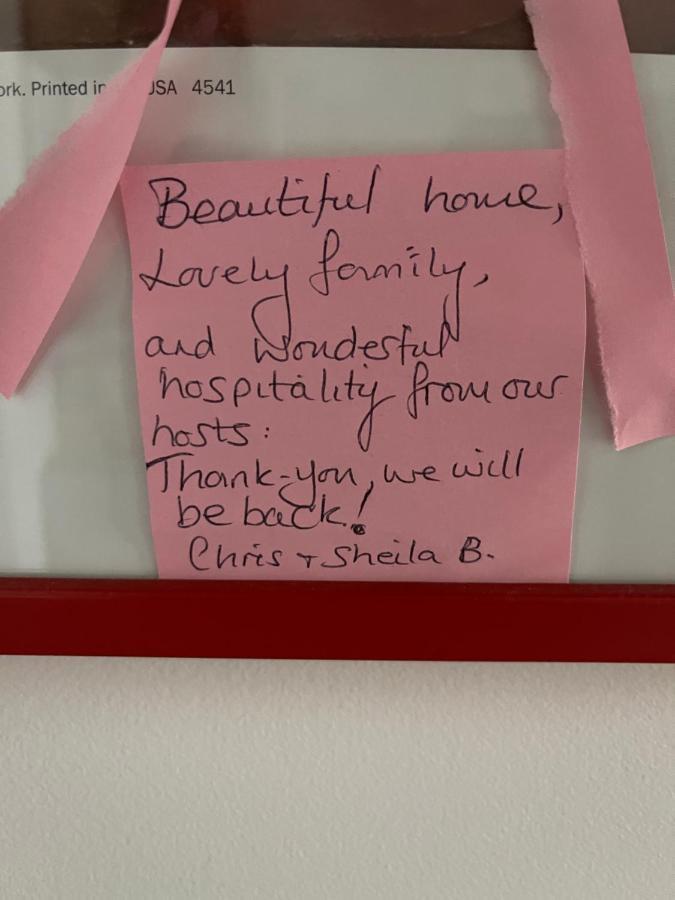 ork. Printed in USA 4541
Beautiful home,
Lovely family,
and wonderful
hospitality from our
hosts:
Thank-you, we will
be back!
Chris + Sheila B.